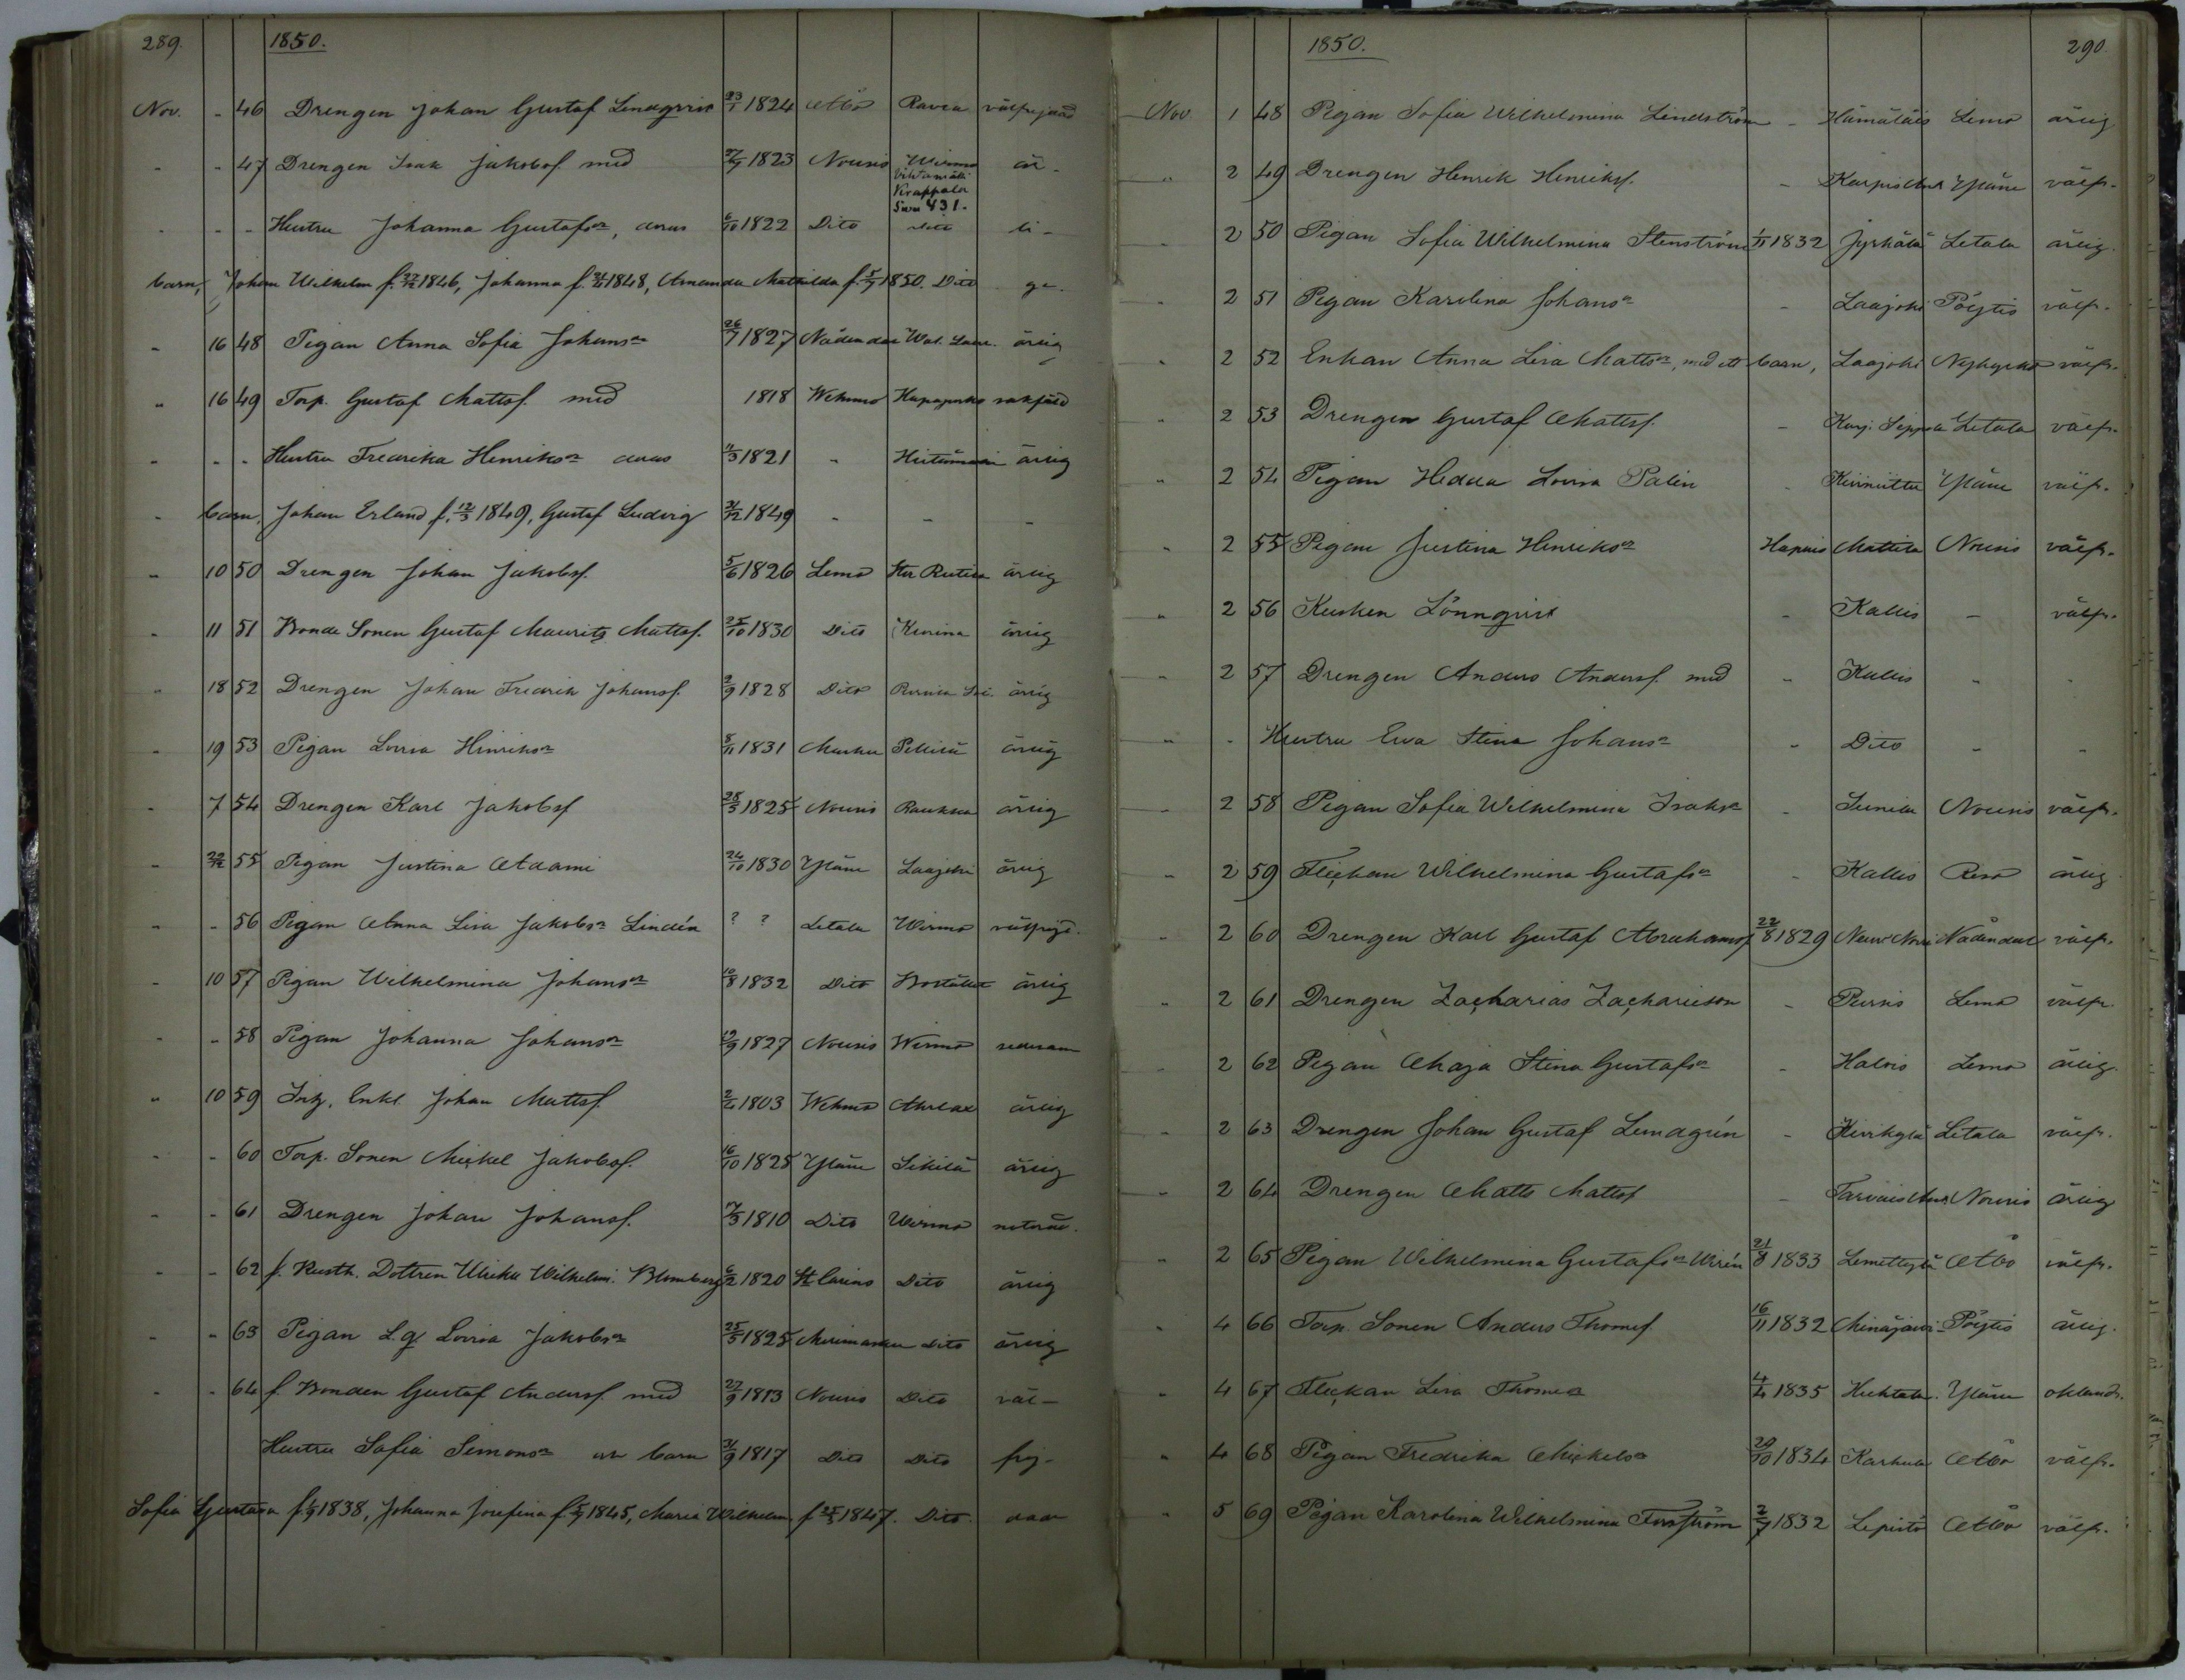 289. 1850.
Nov. - 46 Drengen Johan Gustaf Lindqvist 23/1 1824 Åbo Ravea välfrejdad
- - 47 Drengen Isak Jakobsf. med 27/9 1823 Nousis Wirmo är-
Vihtamäki
Krappala
Sivu 431.
- - - Hustru Johanna Gustafsr, deras 6/10 1822 Dito Dito li-
barn, Johan Wilhelm f. 27/12 1846, Johanna f. 1848, Amanda Mathilda f. 5/7 1850. Dito ga.
- 16 48 Pigan Anna Sofia Johansr 26/7 1827 Nådendal Wal. Laur. ärlig
" 16 49 Torp. Gustaf Mattsf. med 1818 Wehmo
- - - Hustru Fredrika Henriksr deras 11/3 1821 - ärlig
- barn, Johan Erland f. 12/3 1849, Gustaf Ludvig 31/12 1849 - - -
- 10 50 Drengen Johan Jakobsf. 5/6 1826 Lemo Stor Rutila ärlig
- 11 51 Bonde Sonen Gustaf Maurits Mattsf. 25/10 1830 Dito Kurina ärlig
" 18 52 Drengen Johan Fredrik Johansf. 2/9 1828 Dito ärlig
- 19 53 Pigan Lovisa Hinriksr 8/11 1831 Masku Pellilä ärlig
- 7 54 Drengen Karl Jakobsf 28/3 1825 Nousis Raukka ärlig
- 22/12 55 Pigan Justina Adami 24/10 1830 Yläne Laajoki ärlig
" - 56 Pigan Anna Lisa Jakobsr Lindén ? ? Letala Wirmo välfrejd.
- 10 57 Pigan Wilhelmina Johansr 10/8 1832 Dito Bostället ärlig
- - 58 Pigan Johanna Johansr 19/9 1827 Nousis Wirmo sedesam
" 10 59 Inh. Enkl. Johan Mattsf. 2/4 1803 Wehmo Ahrlax ärlig
- - 60 Torp. Sonen Mickel Jakobsf. 16/10 1825 Yläne Sikilä ärlig
- - 61 Drengen Johan Johansf. 7/3 1810 Dito Wirmo
- - 62 f. Rusth. Dottren Ulrika Wilhelmi. Blomberg 6/2 1820 St Carins Dito ärlig
- - 63 Pigan L.q Lovisa Jakobsr 25/5 1825 Merimasku Dito ärlig
- - 64 f. Bonden Gustaf Andersf. med 27/9 1813 Nousis Dito väl-
Hustru Sofia Simonsr och barn 31/9 1817 Dito Dito frej-
Sofia Gustava f. 1/9 1838, Johanna Josefina f. 5/9 1845, Maria Wilhelm. f 25/5 1847. Dito dade
1850. 290.
Nov 1 48 Pigan Sofia Wilhelmina Lindström - Hämäläis Lemo ärlig
" 2 49 Drengen Henrik Henriksf. - Yläne välfr.
- 2 50 Pigan Sofia Wilhelmina Stenström 1/11 1832 Jyrkälä Letala ärlig.
" 2 51 Pigan Karolina Johansr - Laajoki Pöytis välfr.
" 2 52 Enkan Anna Lisa Mattsr, med ett barn, Laajoki Nykyrko välfr.
" 2 53 Drengen Gustaf Mattsf. - Karj. Seppälä Letala välfr.
" 2 54 Pigan Hedda Lovisa Palin - Kiiniittu Yläne välfr.
" 2 55 Pigan Justina Henriksr Hapais Mattila Nousis välfr.
" 2 56 Kusken Lönnqvist - Kallis - välfr.
" 2 57 Drengen Anders Andersf. med - Kallis - -
" - Hustru Eva Stina Johansr - Dito - -
" 2 58 Pigan Sofia Wilhelmina Isaksr - Junila Nousis välfr.
" 2 59 Flickan Wilhelmina Gustafsr - Kallis Reso ärlig
" 2 60 Drengen Karl Gustaf Abrahamsf 22/8 1829 Nådendal välfr.
" 2 61 Drengen Zacharias Zachariesson - Purris Lemo välfr.
" 2 62 Pigan Maja Stina Gustafsr - Halois Lemo ärlig.
" 2 63 Drengen Johan Gustaf Lindgrén - Kivikylä Letala välfr.
" 2 64 Drengen Matts Mattsf - Nousis ärlig
" 2 65 Pigan Wilhelmina Gustafsr Wirén 21/8 1833 Lemettylä Åbo välfr.
" 4 66 Torp. Sonen Anders Thomsf 16/11 1832 Minäjärvi Pöytis ärlig.
" 4 67 Flickan Lisa Thomasr 4/4 1835 Huhtala Yläne okland.
" 4 68 Pigan Fredrika Mickelsr 29/10 1834 Karhula Åbo välfr.
" 5 69 Pigan Karolina Wilhelmina Forsström 2/7 1832 Lepistö Åbo välfr.